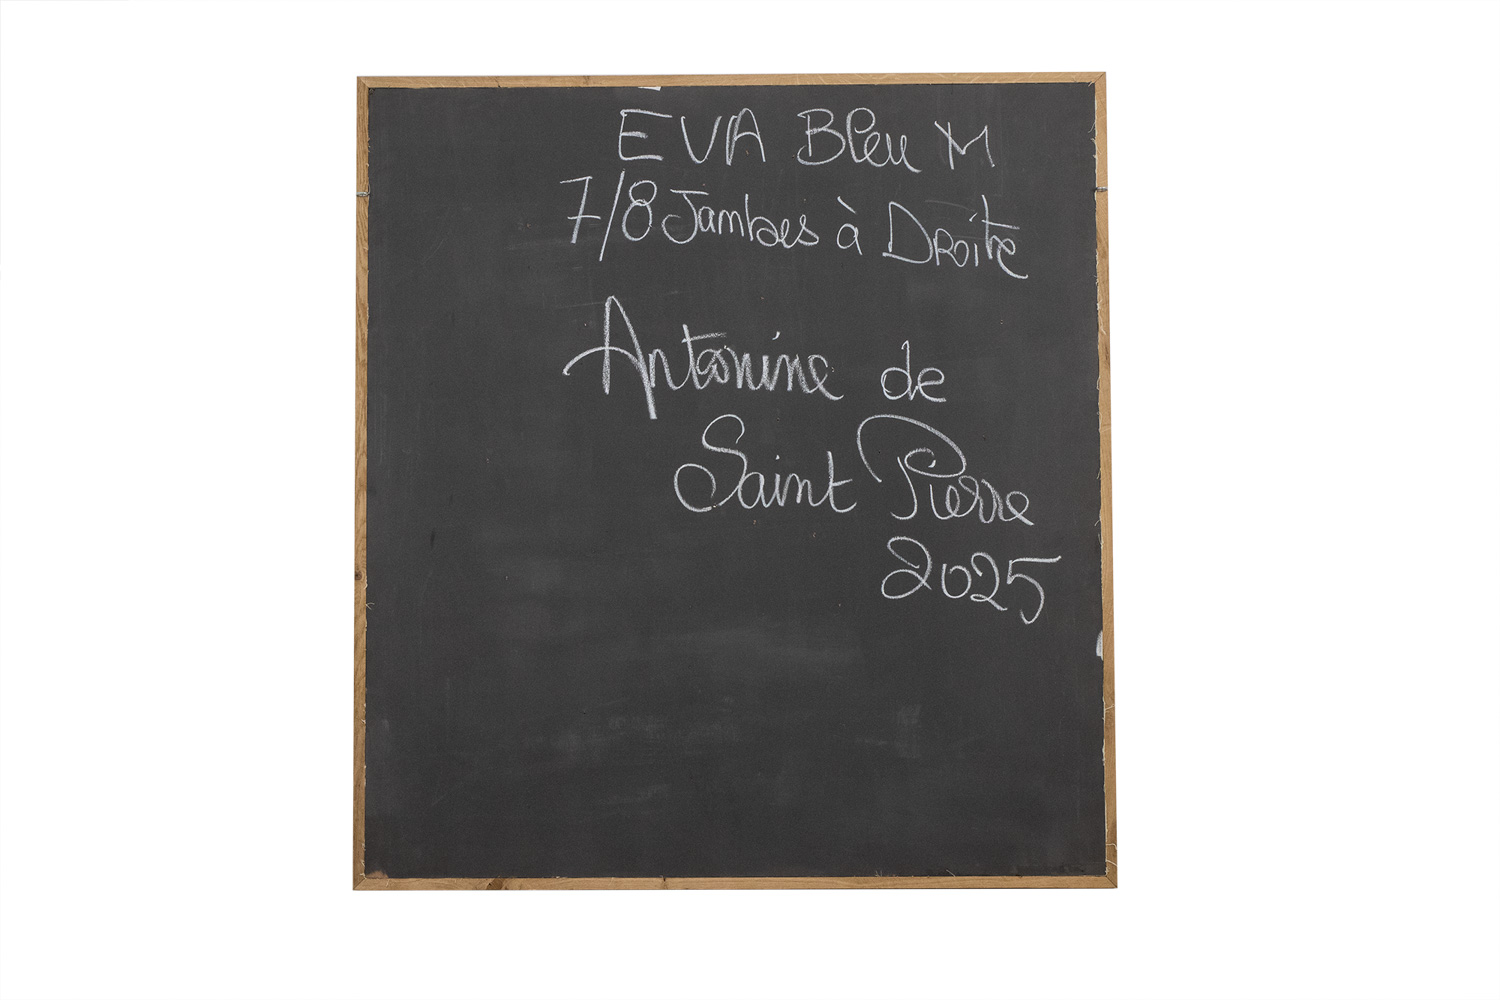 EVA Bleu M
7/8 Jambes à DRoite
Antonine de
Saint Pierre
2025